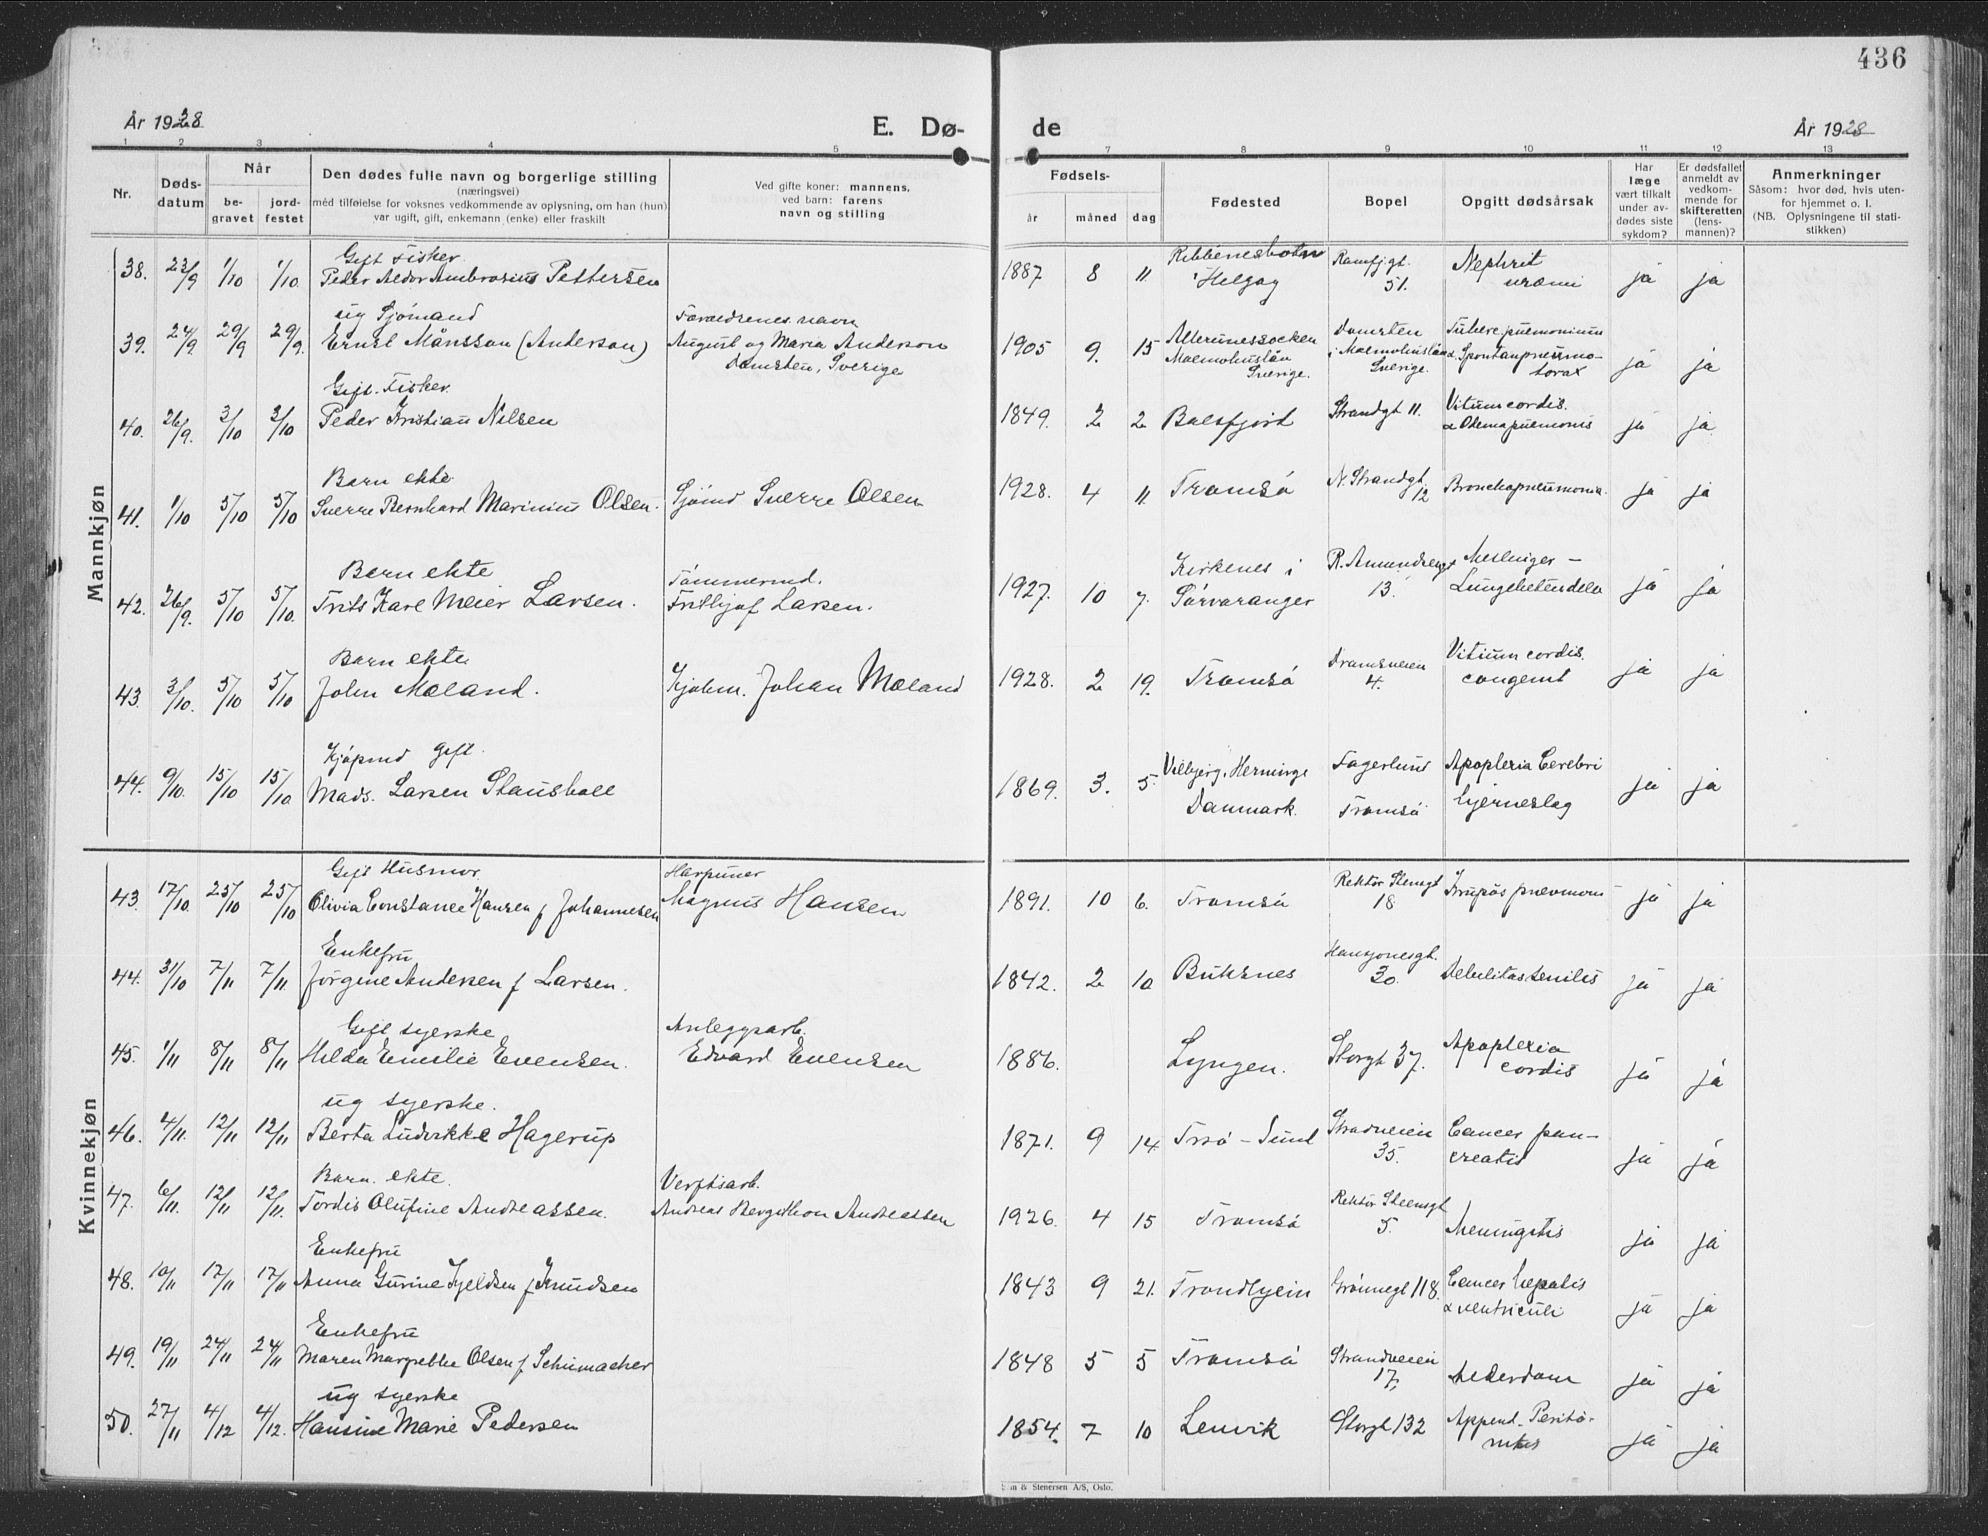 436
År 1928
E. Dø-
de
År 1928
1 2 3 4 5 7 8 9 10 11 12 13
Nr.
Døds-
datum
Når
be-
gravet
jord-
festet
Den dødes fulle navn og borgerlige stilling
(næringsvei)
med tilføielse for voksnes vedkommende av oplysning, om han (hun)
var ugift, gift, enkemann (enke) eller fraskilt
Ved gifte koner: mannens,
ved barn: farens
navn og stilling
Fødsels-
år
måned
dag
Fødested
Bopel
Opgitt dødsårsak
Har
læge
vært tilkalt
under av-
dødes siste
sykdom?
Er dødsfallet
anmeldt av
vedkom-
mende for
skifteretten
(lens-
mannen)?
Anmerkninger
Såsom: hvor død, hvis uten-
for hjemmet o. l.
(NB. Oplysningene til stati-
stikken)
Mannkjøn
Gift Fisker
38. 23/9 1/10 1/10 Peder Aldor Ambrosius Pettersen 1887 8 11. Helgøy Ramfjgt. 51. Nephrit uræmi ja ja
ug Sjömand
39. 24/9 29/9 29/9 Ernst Månsson (Anderson)
Foreldrenes navn
August og Maria Anderson
Domsten, Sverige
1905 9. 15 Allerumssocken
Malmöhuslän
Sverige.
Domsten
i Malmöhuslän
Sverige.
Tuberc. pulmonum
& Spontanpneumo-
torax
ja ja
Gift. Fisker.
40. 26/9. 3/10 3/10 Peder Kristian Nilsen 1849. 2 2 Balsfjord Strandgt 11. Vitium cordis.
& Ödema pulmonis
ja ja
Barn ekte
41. 1/10 5/10 5/10 Sverre Bernhard Marinius Olsen. Sjömd Sverre Olsen 1928. 4 11. Tromsö N. Strandgt 12 Bronchopneumonia. ja ja
Barn ekte
42. 26/9. 5/10 5/10. Frits Karl Meier Larsen.
Tömmermd.
Frithjof Larsen.
1927. 10 7. Kirkenes i
Sörvaranger
R. Amundsensgt
13.
Meslinger –
Lungebetendelse
ja ja
Barn ekte
43. 3/10. 5/10 5/10 John Mæland. Kjøbm. Johan Mæland 1928. 2 19. Tromsö Dramsveien
4.
Vitium cordis.
congenit
ja ja
Kjöpmd gift.
44. 9/10. 15/10 15/10. Mads. Larsen Stausholl 1869. 3. 5. Vildbjerg, Herninge
Danmark.
Fagerlund
Tromsö
Apoplexia Cerebri
hjerneslag
ja ja
Kvinnekjøn
Gift Husmor
43. 17/10. 25/10 25/10 Olivia Constance Hansen f Johannesen
Harpuner
Magnus Hansen
1891. 10 6. Tromsö Rektor Steensgt
18
Krupös pneumoni ja ja
Enkefru
44. 31/10 7/11 7/11 Jörgine Andersen f Larsen. 1842. 2 10 Buksnes Hansjonesgt.
30.
Debilitas senilis ja ja
Gift syerske
45. 1/11 8/11 8/11 Hilda Emilie Evensen.
Anleggsarb.
Edvard Evensen
1886. Lyngen. Storgt 37. Apoplexia
cordis
ja ja
ug syerske.
46. 4/11. 12/11 12/11 Berta Ludvikke Hagerup 1871. 9 14 Trsö – Sund Strandveien
35.
Cancer pan-
creatis
ja ja
Barn. ekte.
47. 6/11. 12/11 12/11. Tordis Olufine Andreassen.
Verftsarb.
Andreas Bergithon Andreassen
1926. 4 15 Tromsö Rektor Steensgt
5.
Meningitis ja ja
Enkefru
48. 10/11 17/11 17/11 Anna Gurine Kjeldsen f Knudsen 1843 9 21. Trondhjem Grönnegt 118. Cancer hepatis
& ventriculi
ja ja
Enkefru
49. 19/11 24/11 24/11 Maren Margrethe Olsen f Schumacher 1848 5 5 Tromsö Strandveien
17,
Alderdom ja ja
ug syerske
50. 27/11 4/12 4/12. Hansine Marie Pedersen 1854. 7 10 Lenvik Storgt 132 Append. Perito-
nitis
ja ja
& Stenersen A/S, Oslo.